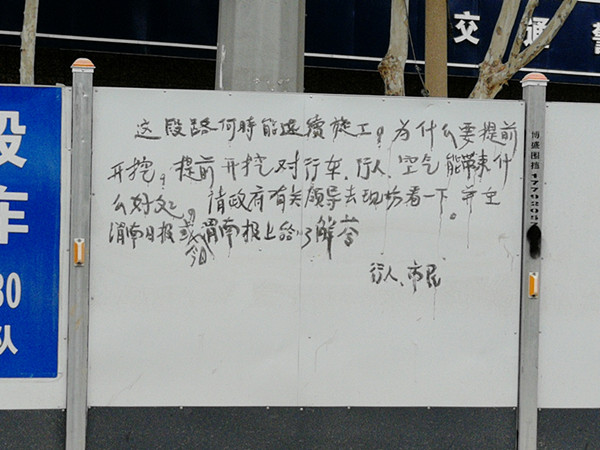 交通警
这段路何時能連續施工？为什么要提前
开挖？提前开挖对行车、行人、空气能带来什
么好处？请政府有关领导去现场看一下。并在
渭南日报或渭南报上给了解答
今日
行人、市民
段
车
30
队
博盛围挡